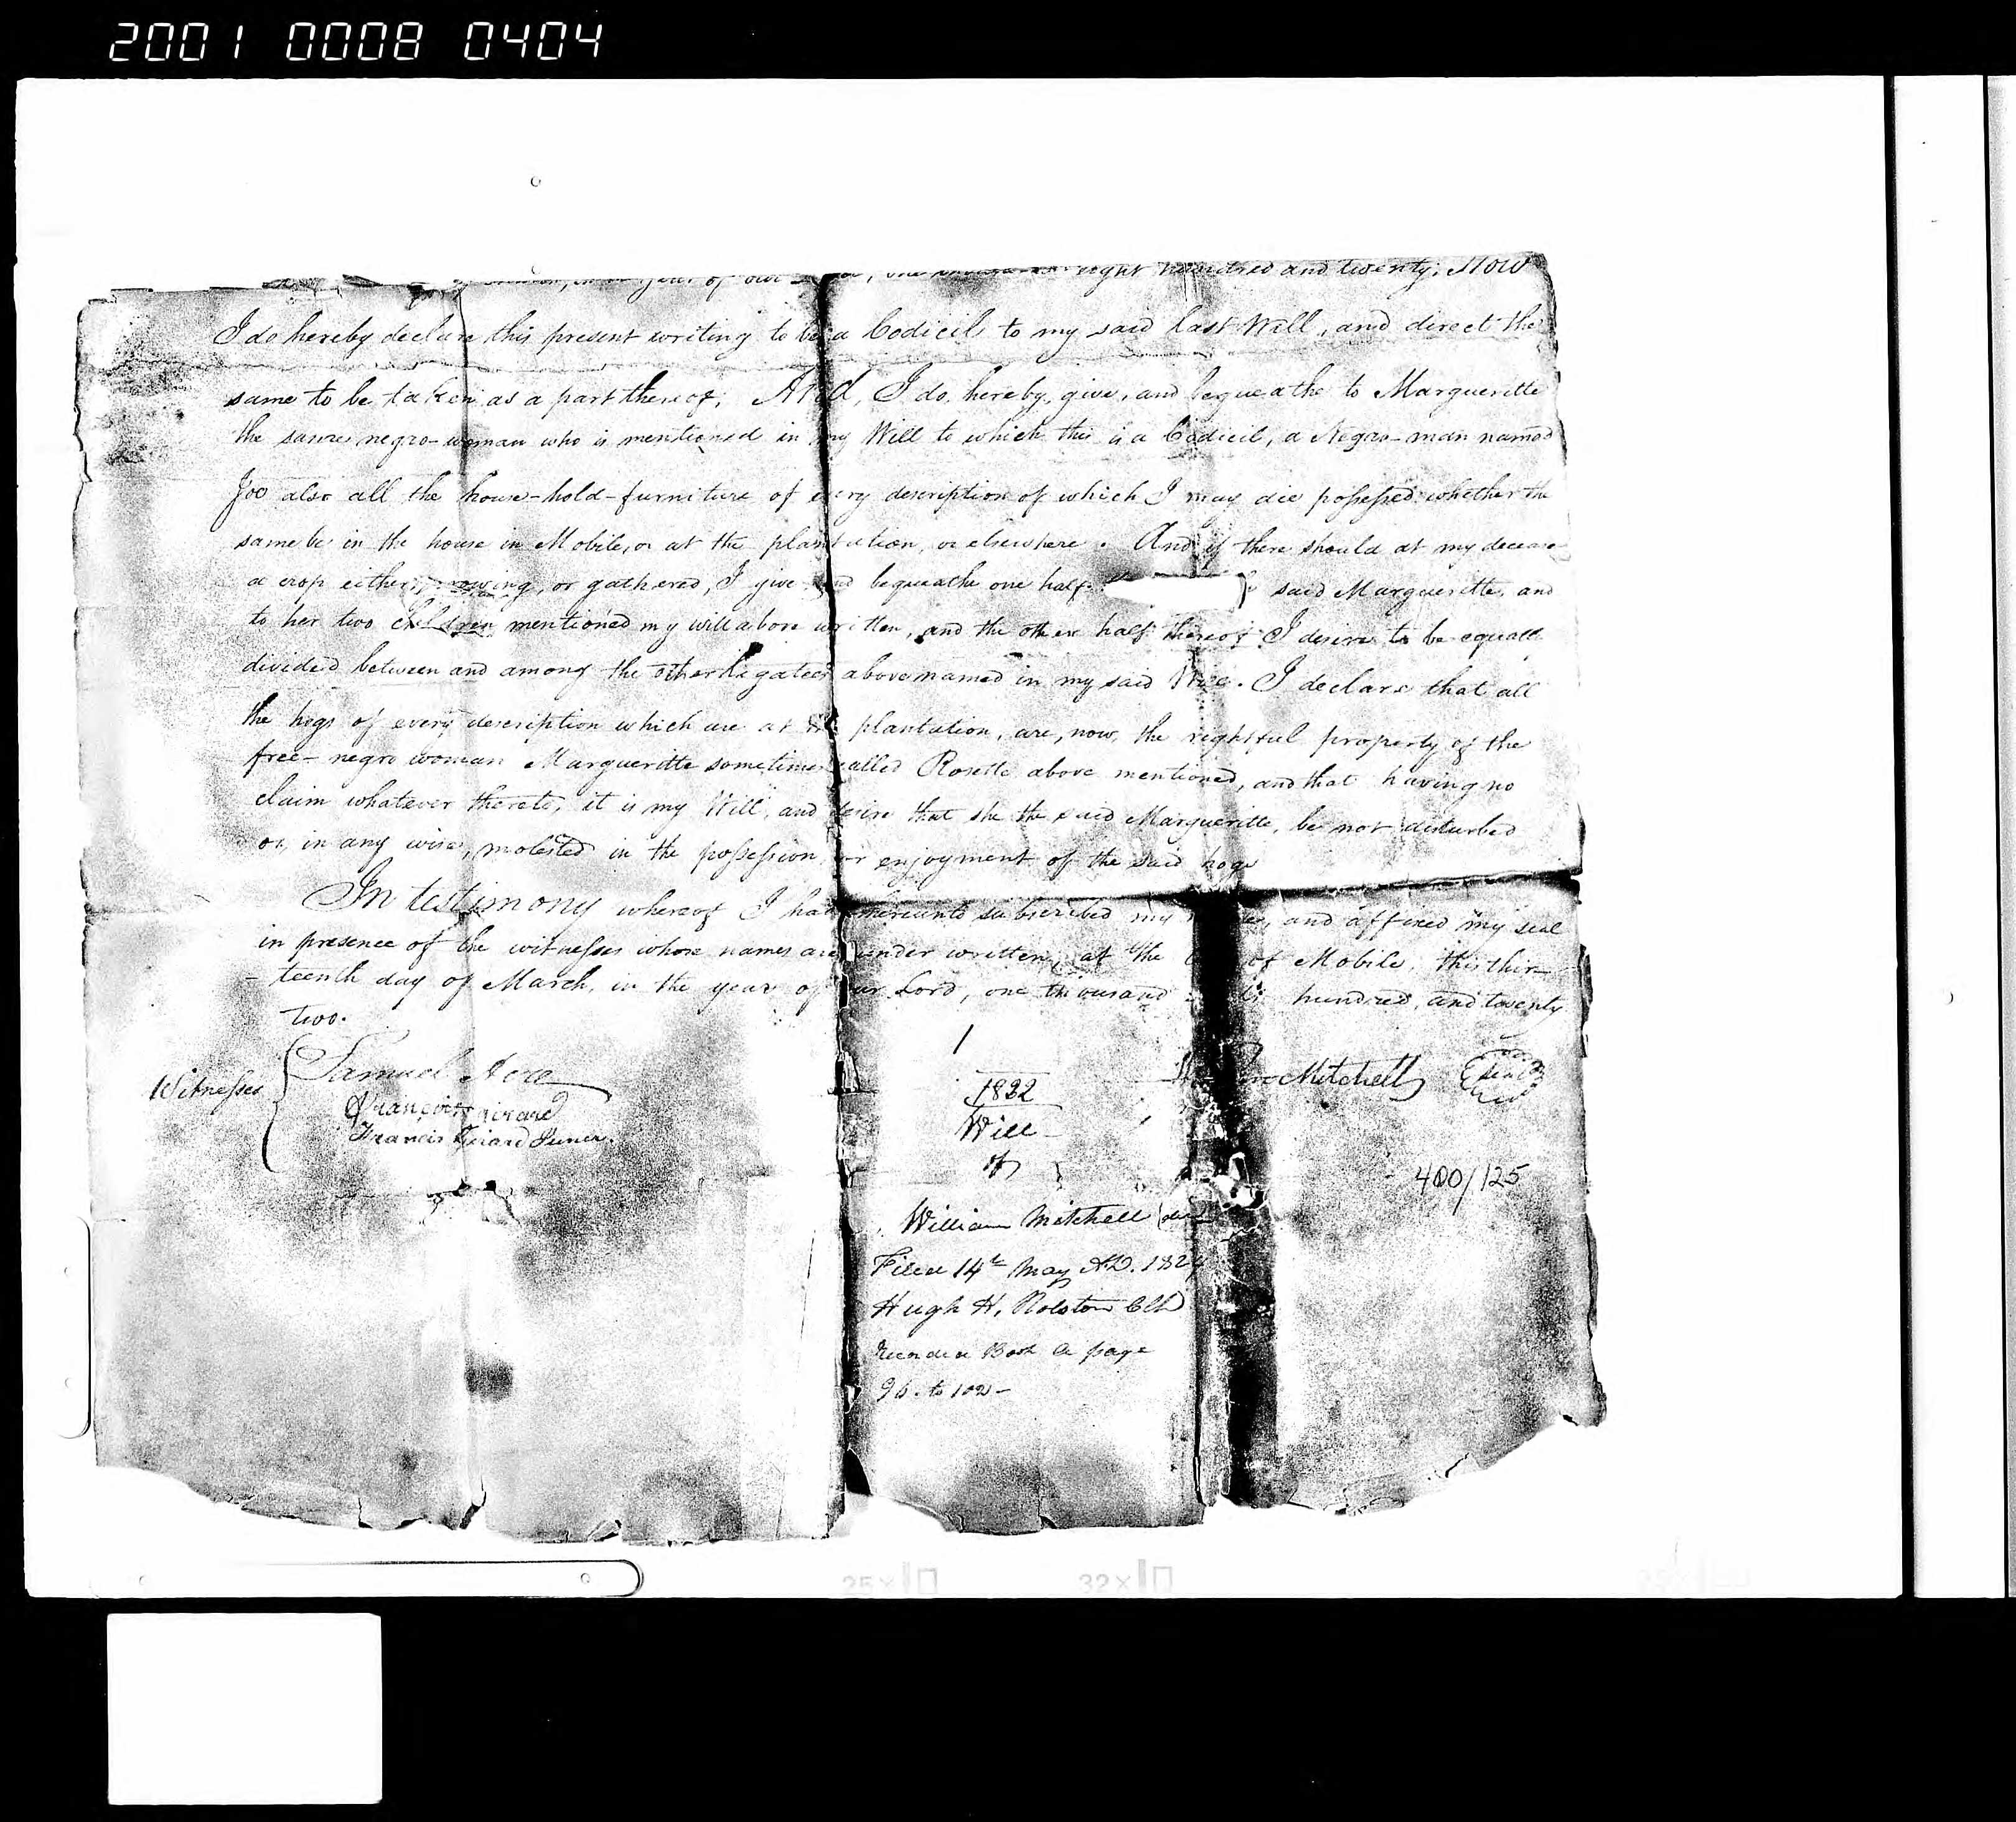 2001 0008 0404
year of our eight hundred and twenty; Now
I do hereby declare this present writing to be a Codicil to my said last Will, and direct the
same to be taken as a part thereof; And, I do, hereby, give, and bequeathe to Margueritte
the same negro-woman who is mentioned in my Will to which this is a Codicil, a Negro-man named
Joe also all the house-hold-furniture of every description of which I may die possessed whether the
same be in the house in Mobile, or at the plantation, or elsewhere. And if there should at my decease
a crop either, growing, or gathered, I give and bequeathe one half said Margueritte, and
to her two children mentioned my will above written, and the other half thereof I desire to be equally
divided between and among the other legatees above named in my said Will. I declare that all
the hogs of every description which are at the plantation, are, now, the rightful property of the
free-negro woman Margueritte sometimes called Rosette above mentioned, and that having no
claim whatever thereto, it is my Will, and desire that she the said Margueritte, be not disturbed
or, in any wise, molested in the possession or enjoyment of the said hogs
In testimony whereof I have hereunto subscribed my name, and affixed my seal
in presence of the witnesses whose names are under written, at the of Mobile, this thir-
-teenth day of March, in the year of our Lord, one thousand eight hundred, and twenty
two.
Witnesses
Samuel Acre
François Girard
Francis Girard Junior.
Mitchell
Seal
1822
Will
of
William Mitchell
400/125
Filed 14th May AD. 1824
Hugh H, Rolston Clk
Recorded Book A page
96. to 102-
25X 32X